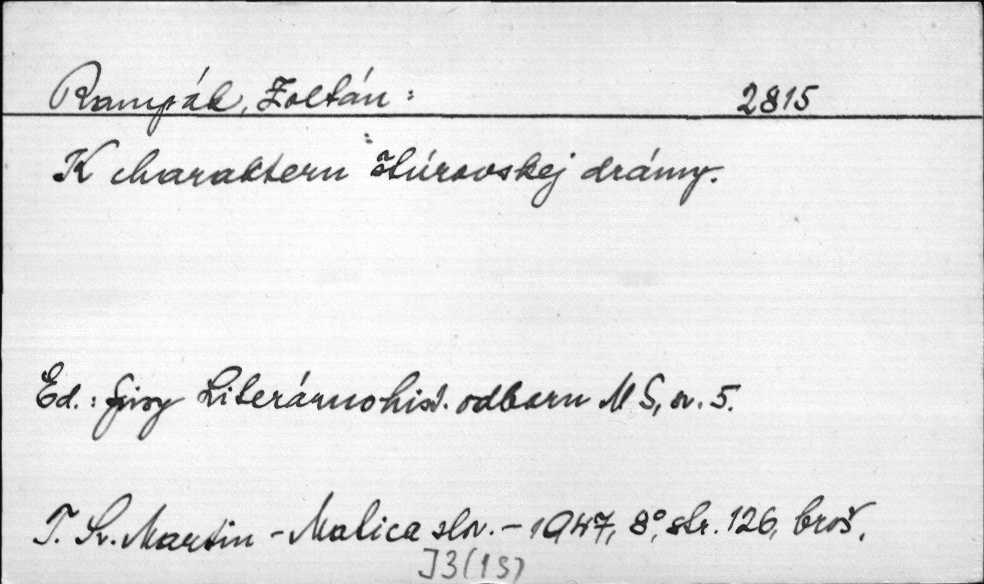 Rampák, Zoltán: 2815
K charakteru štúrovskej drámy.
Ed.: Spisy Literárnohist. odboru M S, sv. 5.
T. Sv. Martin - Matica slov. - 1947, 8°, str. 126, brož.
J3(1S)